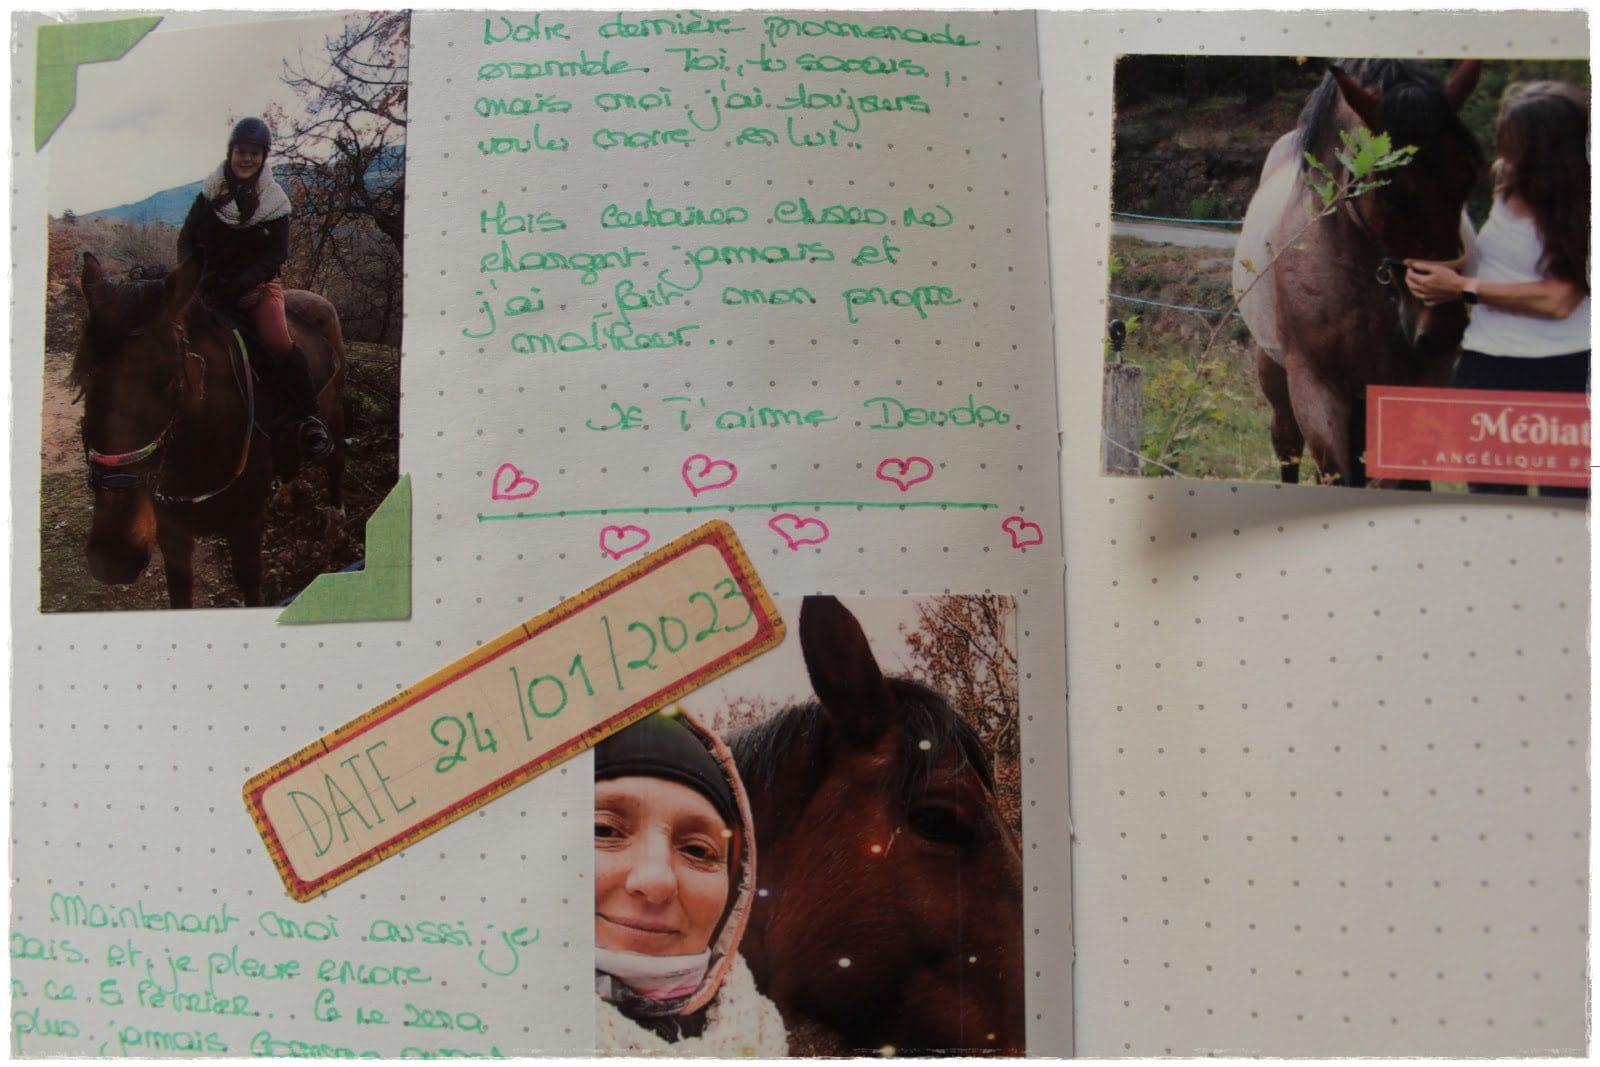 Notre dernière promenade
ensemble. Toi, tu savais,
mais moi j'ai toujours
voulu croire en lui..
Mais certaines choses ne
changent jamais et
j'ai fait mon propre
malheur..
Je t'aime Doudou
Médiat
ANGÉLIQUE P
DATE 24/01/2023
Maintenant moi aussi je
sais et je pleure encore
ce 5 février... Ce ne sera
plus jamais comme avant